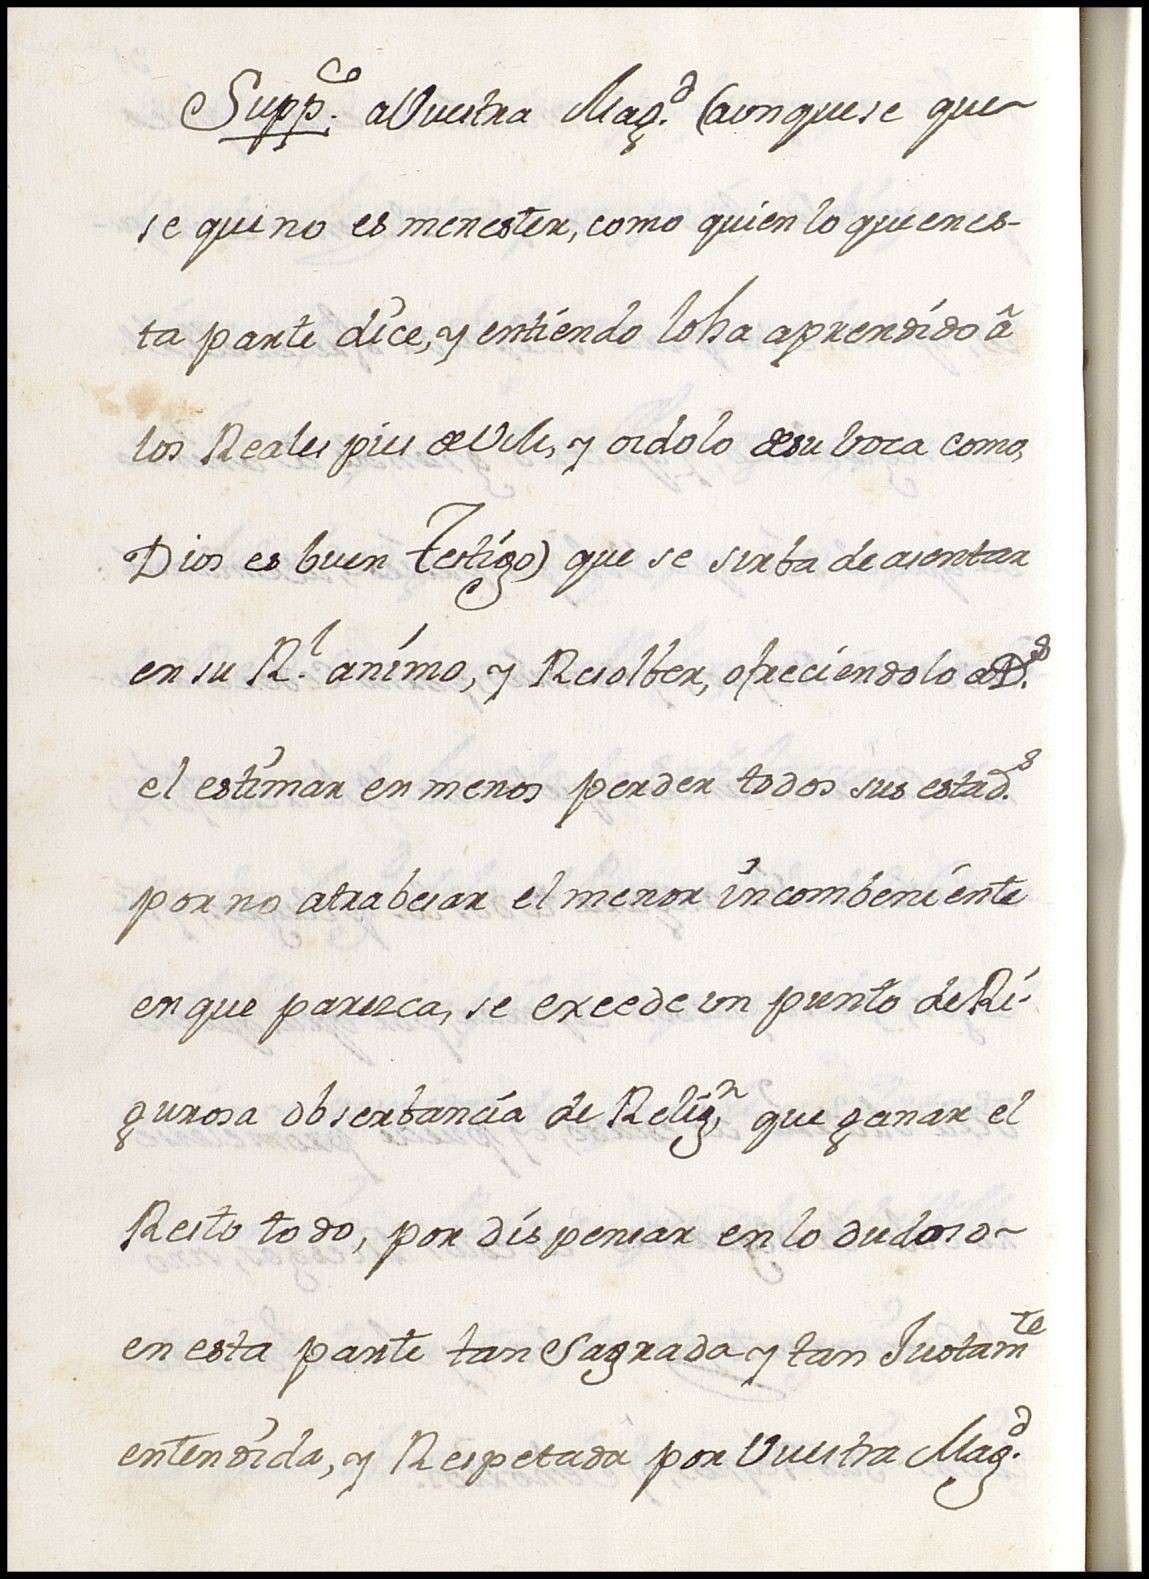 Supp.co a Vuestra Mag.d (aunque se que
se que no es menester, como quien lo que en es-
ta parte dice, y entiendo lo ha aprendido â
los Reales pies de VM, y oidolo de su boca como,
Dios es buen Testigo) que se sirba de asentar
en su R.l animo, y Resolber, ofreciendolo a D.s
el estimar en menos perder todos sus estad.s
por no atrabesar el menor incombeniente
en que paresca, se excede un punto de Ri-
gurosa obserbancia de Relig.n que ganar el
Resto todo, por dispensar en lo dudoso
en esta parte tan Sagrada y tan Justam.te
entendida, y Respetada por Vuestra Mag.d